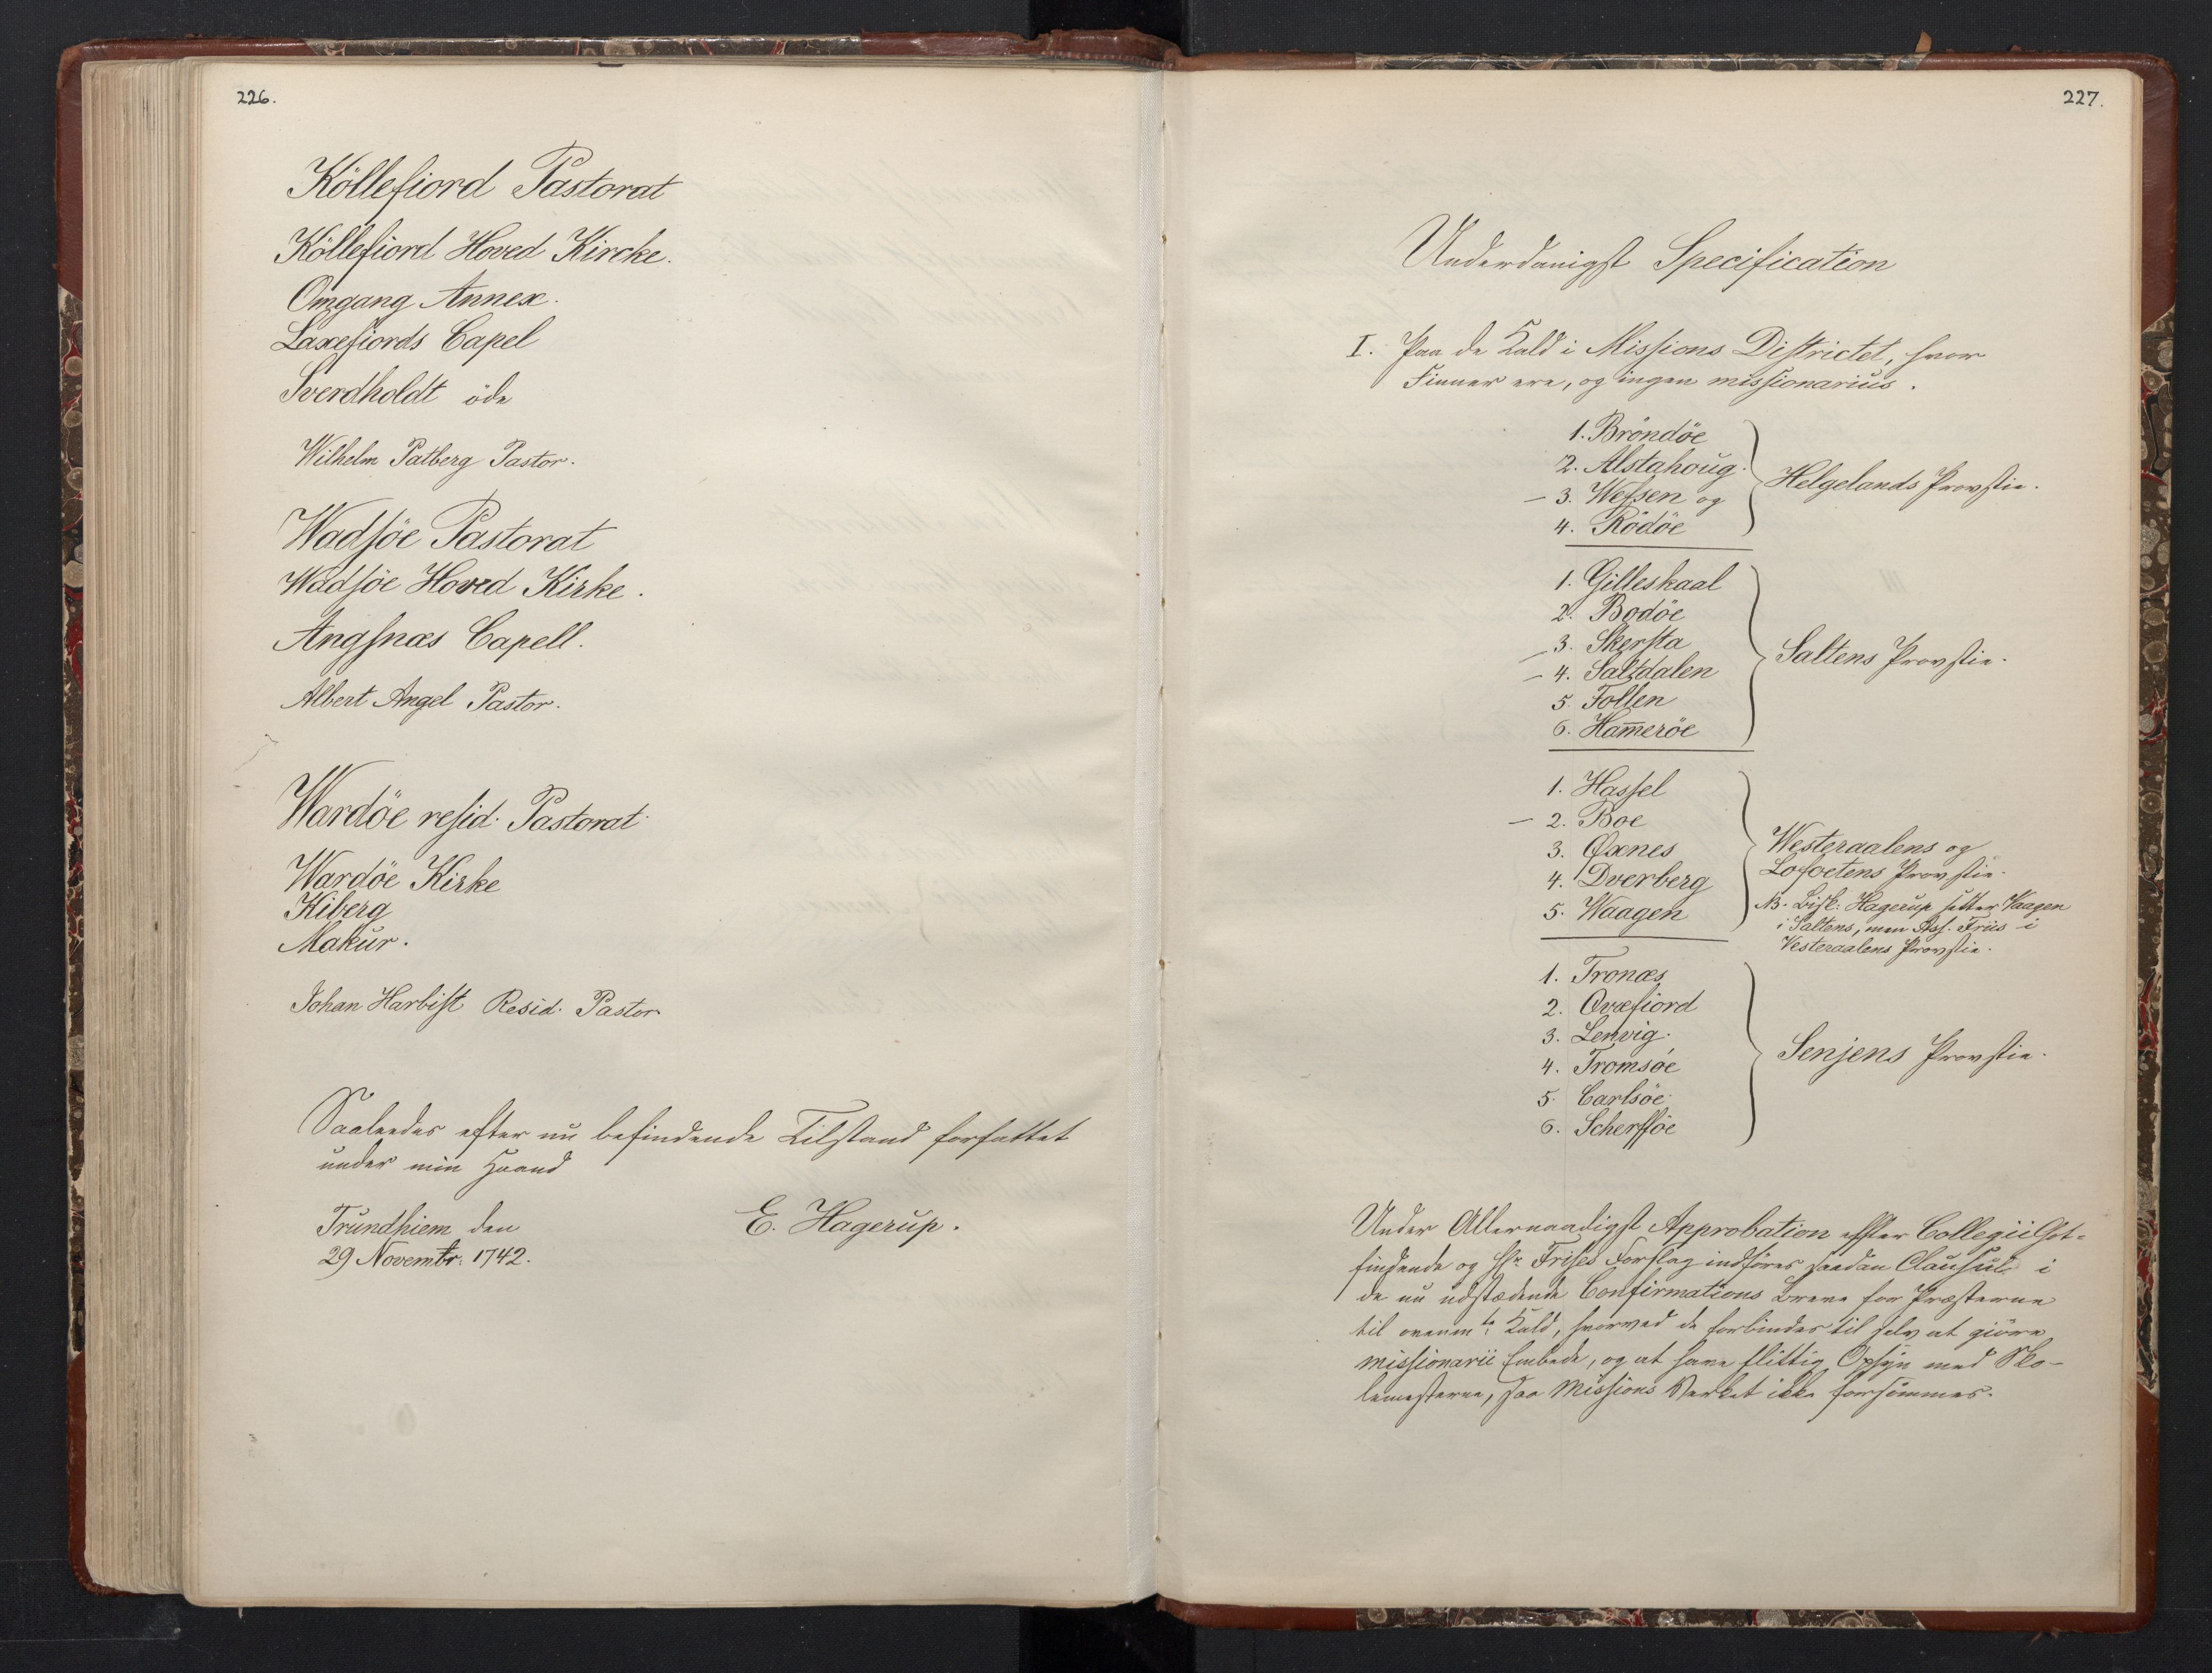 226.
Köllefiord Pastorat
Köllefiord Hoved Kircke.
Omgang Annex.
Laxefiords Capel
Sverdholdt öde
Wilhelm Patberg Pastor.
Wadsöe Pastorat
Wadsöe Hoved Kirke.
Angsnæs Capell.
Albert Angel Pastor.
Wardöe resid. Pastorat.
Wardöe Kirke
Kiberg
Makur.
Johan Harbist Resid. Pastor
Saaledes efter nu befindende Tilstand forfattet
under min Haand
Trundhiem den
29 Novembr. 1742.
E. Hagerup.
227.
Underdanigst Specification
I. Paa de Kald i Missions Districtet, hvor
Finner ere, og ingen missionarius.
1. Bröndöe
2. Alstahoug.
– 3. Wefsen og
4. Rödöe
Helgelands Provstie.
1. Gilleskaal
2. Bodöe
– 3. Skersta
– 4. Saltdalen
5. Follen
6. Ham̅eröe
Saltens Provstie.
1. Hassel
– 2. Boe
3. Øxnes
4. Dverberg
5. Waagen
Westeraalens og
Lofoetens Provstie.
NB. Bisk: Hagerup setter Vaagen
i Saltens, men Ass. Friis i
Vesteraalens Provstie.
1. Tronæs
2. Qvæfiord
3. Lenvig.
4. Tromsöe
5. Carlsöe
6. Scherfföe
Senjens Provstie.
Under Allernaadigst Approbation efter Collegii Got-
findende og Hr Frises Forslag indföres saadan Clausul i
de nu udstædende Confirmations Breve for Præsterne
til ovenmte: Kald, hvorved de forbindes til selv at giöre
missionarii Embede, og at have flittig Opsyn med Sko-
lemesterne, saa Missions Verket ikke forsömmes.